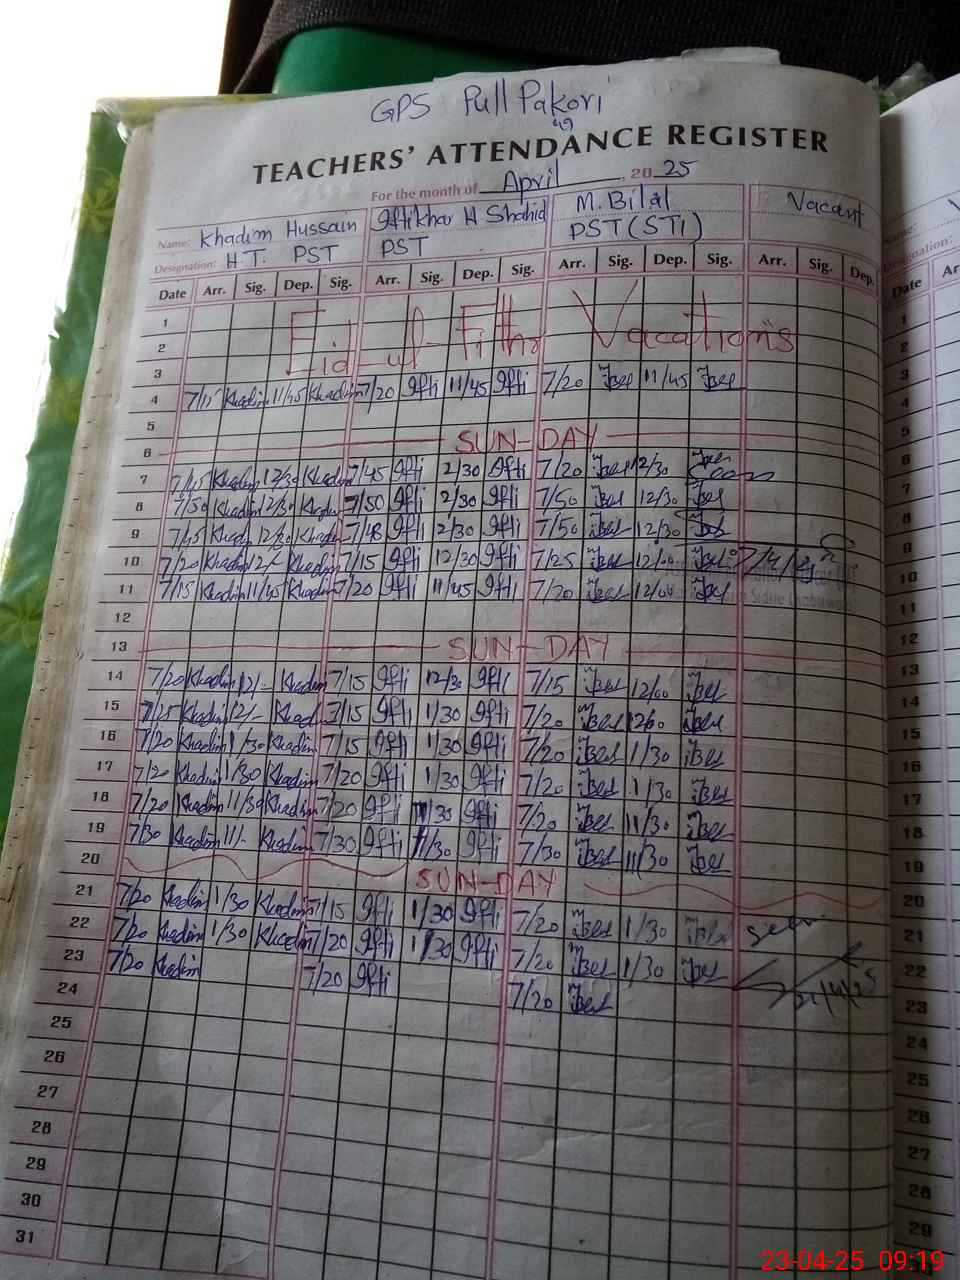 GPS Pull Pakori
49
TEACHERS' ATTENDANCE REGISTER
For the month of April, 2025
Name: Khadim Hussain Iftikhar H Shahid M. Bilal Vacant
Designation: H.T. PST PST PST (STI)
Date Arr. Sig. Dep. Sig. Arr. Sig. Dep. Sig. Arr. Sig. Dep. Sig. Arr. Sig. Dep.
1
2 Eid-ul-Fithr Vacations
3
4 7/15 Khadim 11/45 Khadim 7/20 Ifti 11/45 Ifti 7/20 11/45
5
6 SUN-DAY
7 7/45 Khadim 12/30 Khadim 7/45 Ifti 2/30 Ifti 7/20 12/30
8 7/50 Khadim 12/30 Khadim 7/50 Ifti 2/30 Ifti 7/50 12/30
9 7/45 Khadim 12/30 Khadim 7/48 Ifti 2/30 Ifti 7/50 12/30
10 7/20 Khadim 12/- Khadim 7/15 Ifti 12/30 Ifti 7/25 12/00
11 7/15 Khadim 11/45 Khadim 7/20 Ifti 11/45 Ifti 7/20 12/00
12
13 SUN-DAY
14 7/20 Khadim 12/- Khadim 7/15 Ifti 12/30 Ifti 7/15 12/00
15 7/15 Khadim 12/- Khadim 7/15 Ifti 1/30 Ifti 7/20 12/00
16 7/20 Khadim 1/30 Khadim 7/15 Ifti 1/30 Ifti 7/20 1/30
17 7/20 Khadim 1/30 Khadim 7/20 Ifti 1/30 Ifti 7/20 1/30
18 7/20 Khadim 11/30 Khadim 7/20 Ifti 11/30 Ifti 7/20 11/30
19 7/30 Khadim 11/- Khadim 7/30 Ifti 11/30 Ifti 7/30 11/30
20 SUN-DAY
21 7/20 Khadim 1/30 Khadim 7/15 Ifti 1/30 Ifti 7/20 1/30 seen
22 7/20 Khadim 1/30 Khadim 7/20 Ifti 1/30 Ifti 7/20 1/30
23 7/20 Khadim 7/20 Ifti 7/20
24
25
26
27
28
29
30
31
Date Arr
1
2
3
4
5
6
7
8
9
10
11
12
13
14
15
16
17
18
19
20
21
22
23
24
25
26
27
28
29
23-04-25 09:19